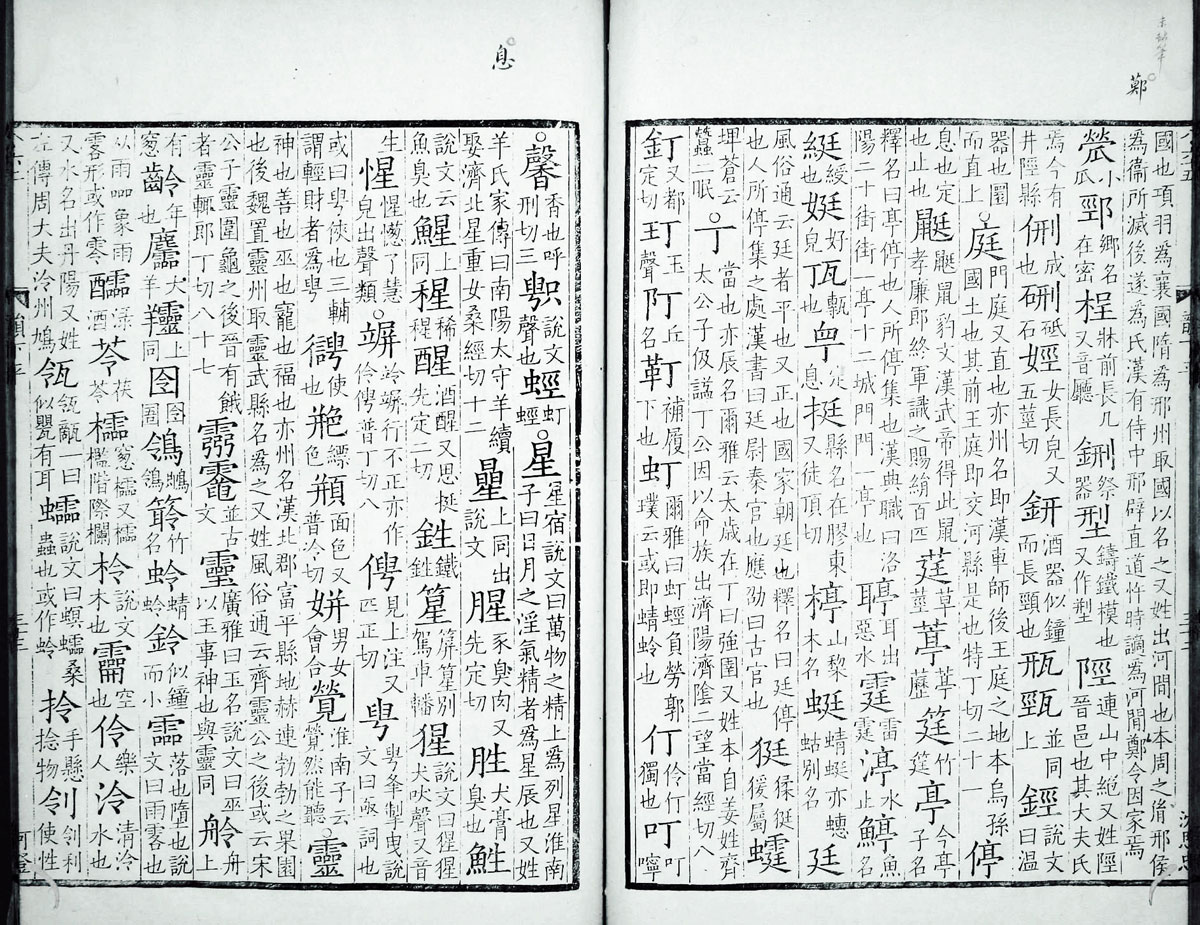 息
鄭
國也項羽為襄國隋為邢州取國以名之又姓出河間也本周之㣧邢侯為衞所滅後遂為氏漢有侍中邢辟直道忤時謫為河閒鄭令因家焉
小瓜郠鄉名在密桯牀前長几又音廳鉶祭器型鑄鐵模也又作㓝陘連山中絕又姓陘晉邑也其大夫氏
焉今有井陘縣侀成也硎砥石娙女長皃又五莖切鈃酒器似鐘而長頸也缾𤭅並同上鋞說文曰溫
器也圜而直上○庭門庭又直也亦州名即漢車師後王庭之地本烏孫國土也其前王庭即交河縣是也特丁切二十一停
息也定也止也鼮鼮鼠豹文漢武帝得此鼠孝廉郎終軍識之賜絹百匹莛草莖葶葶藶筳竹筳亭今亭子名
釋名曰亭停也人所停集也漢典職曰洛陽二十街街一亭十二城門門一亭也聤耵聤惡水出霆雷霆渟水止鯙魚名
綎綬也娗好皃㼗甎也𡧛定息挺縣名在膠東又徒頂切楟山黎木名蜓蜻蜓亦蟌蛄別名廷
風俗通云廷者平也又正也國家朝廷也釋名曰廷停也人所停集之處漢書曰廷尉秦官也應劭曰古官也𤝹猱𤝹猨屬𧕞
埤蒼云𧕞一眠○丁當也亦辰名爾雅云太歲在丁曰強圉又姓本自姜姓齊太公子伋謚丁公因以命族出濟陽濟陰二望當經切八
釘又都定切玎玉聲阠丘名靪補履下也虰爾雅曰虰蛵負勞郭璞云或即蜻蛉也仃伶仃獨也叮叮嚀
○馨香也呼刑切三𠷓聲也說文蛵虰蛵○星星宿說文曰萬物之精上為列星淮南子曰日月之淫氣精者為星辰也又姓
羊氏家傳曰南陽太守羊續娶濟北星重女桑經切十二曐上同出說文腥豕臭肉又先定切胜犬膏臭也鮏
說文云魚臭也鯹上同稴稀稴醒酒醒又思挺先定二切鉎鐵鉎篂屏篂別駕車轓猩說文曰猩猩犬吠聲又音
生惺惺憽了慧皃出聲類○竮竛竮行不正亦作伶俜普丁切八俜見上注又匹正切甹甹夆掣曳說文曰亟詞也
或曰甹俠也三輔謂輕財者為甹𠗦使也艵縹色頩面色又普冷切姘男女會合覮淮南子云覮然能聽○靈
神也善也巫也寵也福也亦州名漢北郡富平縣地赫連勃勃之果園也後魏置靈州取靈武縣名為之又姓風俗通云齊靈公之後或云宋
公子靈圍龜之後晉有餓者靈輒郎丁切八十七𩆜𩆮並古文靈廣雅曰玉名說文曰巫以玉事神也與靈同舲舟上
有䆫齡年也麢大羊羷上同囹囹圄鴒鶺鴒笭竹名蛉蜻蛉鈴似鐘而小霝落也墮也說文曰雨零也
从雨㗊象雨零形或作零醽淥酒苓茯苓櫺䆫櫺又櫺檻階際欄柃說文云木也𩇎空也伶樂人泠清泠水也
又水名出丹陽又姓左傳周大夫泠州鳩瓴瓴甋一曰似甖有耳蠕說文曰螟蠕桑蟲也或作蛉拎手懸捻物刢刢利使性